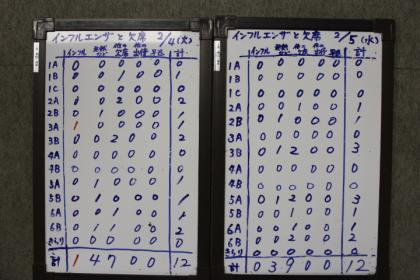 インフルエンザと欠席 2/4(火)
インフル 他の欠席 他の出停 早退 計
1A 0 0 0 0 0 0
1B 0 0 1 0 0 1
1C 0 0 0 0 0 0
2A 0 0 2 0 0 2
2B 0 1 0 0 0 1
3A 1 0 0 0 0 1
3B 0 0 2 0 0 2
4A 0 0 0 0 0 0
4B 0 0 0 0 0 0
5A 0 1 0 0 0 1
5B 0 1 0 0 0 1
6A 0 1 0 0 1
6B 0 0 2 0 0 2
きらり 0 0 0 0 0 0
計 1 4 7 0 0 12
インフルエンザと欠席 2/5(水)
インフル 他の欠席 他の出停 早退 計
1A 0 0 0 0 0 0
1B 0 0 1 0 0 1
1C 0 0 0 0 0 0
2A 0 0 0 0 0 0
2B 0 1 0 0 0 1
3A 0 0 0 0 0 0
3B 0 1 2 0 0 3
4A 0 0 1 0 0 1
4B 0 0 0 0 0 0
5A 0 1 2 0 0 3
5B 0 0 1 0 0 1
6A 0 0 1 0 0 1
6B 0 0 2 0 0 2
きらり 0 0 0 0 0 0
計 0 3 9 0 0 12